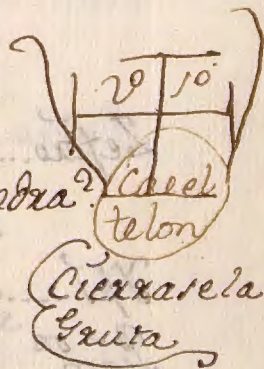 2º 1º
Cae el
telon
Cierrase la
Gruta